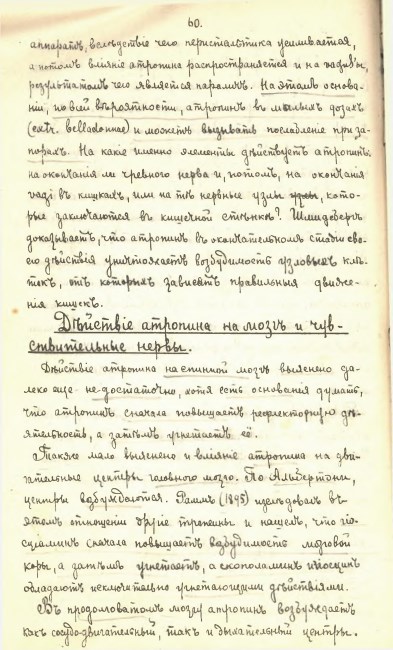 60.
аппаратъ, вслѣдствіе чего перистальтика усиливается,
а потомъ вліяніе атропина распространяется и на
результатомъ чего является параличъ. На этомъ основа-
ніи, по всей вѣроятности, атропинъ въ малыхъ дозахъ
(extr. belladonnae) и можетъ вызывать послабленіе при за-
порахъ. На какіе именно элементы дѣйствуетъ атропинъ:
на окончанія ли чревного нерва и, потомъ, на окончанія
vagi въ кишкахъ, или на тѣ нервные узлы, кото-
рые заключаются въ кишечной стѣнкѣ? Шмидебергъ
доказываетъ, что атропинъ въ окончательномъ стадіи сво-
его дѣйствія уничтожаетъ возбудимость узловыхъ клѣ-
токъ, отъ которыхъ зависятъ правильныя движе-
нія кишекъ.
Дѣйствіе атропина на мозгъ и чув-
ствительные нервы.
Дѣйствіе атропина на спинной мозгъ выяснено да-
леко еще не достаточно, хотя есть основанія думать,
что атропинъ сначала повышаетъ рефлекторную дѣ-
ятельность, а затѣмъ угнетаетъ её.
Также мало выяснено и вліяніе атропина на дви-
гательные центры головного мозга. По Альбертони,
центры возбуждаются. Раммъ (1895) изслѣдовалъ въ
этомъ отношеніи другіе тропеины и нашелъ, что гіо-
сціаминъ сначала повышаетъ возбудимость мозговой
коры, а затѣмъ угнетаетъ, а скополаминъ и гіосцинъ
обладаютъ исключительно угнетающими дѣйствіями.
Въ продолговатомъ мозгу атропинъ возбуждаетъ
какъ сосудо-двигательный, такъ и дыхательный центры.